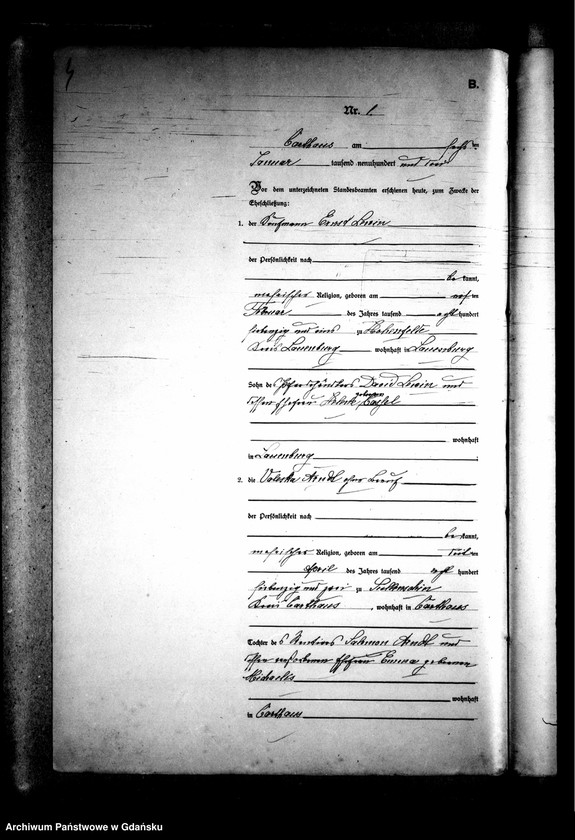 B.
Nr. 1.
Carthaus am sechsten
Januar tausend neunhundert und zwei
Vor dem unterzeichneten Standesbeamten erschienen heute, zum Zwecke der
Eheschließung:
1. der Kaufmann Ernst Lewin
der Persönlichkeit nach
be kannt,
mosaischer Religion, geboren am
Februar des Jahres tausend acht hundert
siebenzig und eins zu Hohenfelde
Kreis Lauenburg wohnhaft in Lauenburg
Sohn des Pferdehändlers David Lewin und
dessen Ehefrau geborenen Cassel
wohnhaft
in Lauenburg
2. die Valeska Arndt ohne Beruf
der Persönlichkeit nach
be kannt,
mosaischer Religion, geboren am
April des Jahres tausend acht hundert
siebenzig und zwei zu
Kreis Carthaus, wohnhaft in Carthaus
Tochter des Rentiers Salomon Arndt und
verstorbenen Ehefrau Emma geborenen
Michaelis
wohnhaft
in Carthaus
Archiwum Państwowe w Gdańsku